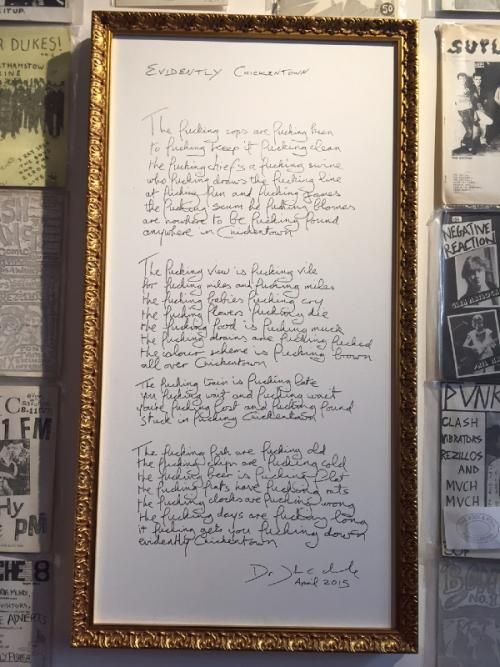 EVIDENTLY CHICKENTOWN
The fucking cops are fucking keen
to fucking keep it fucking clean
the fucking chief's a fucking swine
who fucking draws the fucking line
at fucking fun and fucking games
the fucking kids he fucking blames
are nowhere to be fucking found
anywhere in Chickentown
The fucking view is fucking vile
for fucking miles and fucking miles
the fucking babies fucking cry
the fucking flowers fucking die
the fucking food is fucking muck
the fucking drains are fucking fucked
the colour scheme is fucking brown
all over Chickentown
The fucking train is fucking late
you fucking wait and fucking wait
you're fucking lost and fucking found
stuck in fucking Chickentown
The fucking fish are fucking old
the fucking chips are fucking cold
the fucking beer is fucking flat
the fucking flats have fucking rats
the fucking clocks are fucking wrong
the fucking days are fucking long
it fucking gets you fucking down
evidently Chickentown
Dr J
April 2015
DUKES!
NEGATIVE
REACTION
PUNK
CLASH
VIBRATORS
REZILLOS
AND
MUCH
MUCH
50
FM
PM